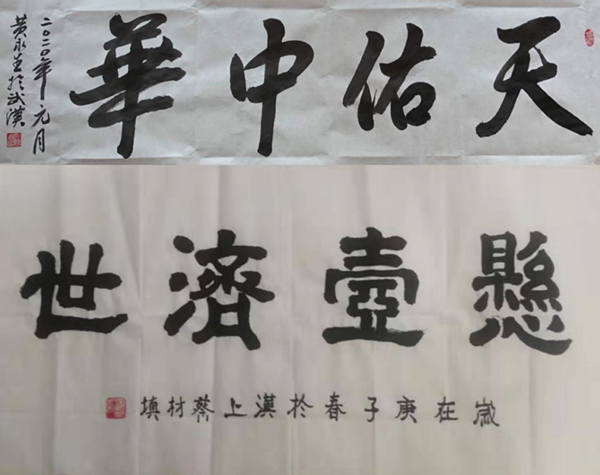 天佑中華
二〇二〇年元月
黄永生於武漢
懸壺濟世
歲在庚子春於漢上蔡材填